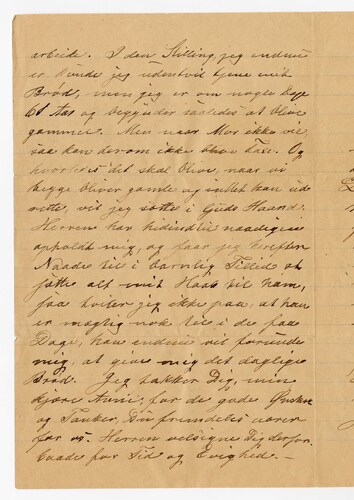 arbeide. I den Stilling, jeg endnu
er kunde jeg udentvil tjene mit
Brød, men jeg er om nogle Dage
61 Aar og begynder saaledes at blive
gammel. Men naar Mor ikke vil,
saa kan derom ikke blive Tale. Og
hvorledes det skal blive, naar vi
begge bliver gamle og intet kan ud
rette, vil jeg sætte i Guds Haand.
Herren har hidindtil naadigen
opholdt mig, og faar jeg herefter
Naade til i barnlig Tillid at
sætte alt mit Haab til ham,
saa tviler jeg ikke paa, at han
er mægtig nok til i de faa
Dage, han endnu vil forunde
mig, at give mig det daglige
Brød. Jeg takker Dig, min
kjære Anne, for de gode Ønsker
og Tanker, Du fremdeles nærer
for os. Herren velsigne Dig derfor
baade for Tid og Evighed.—